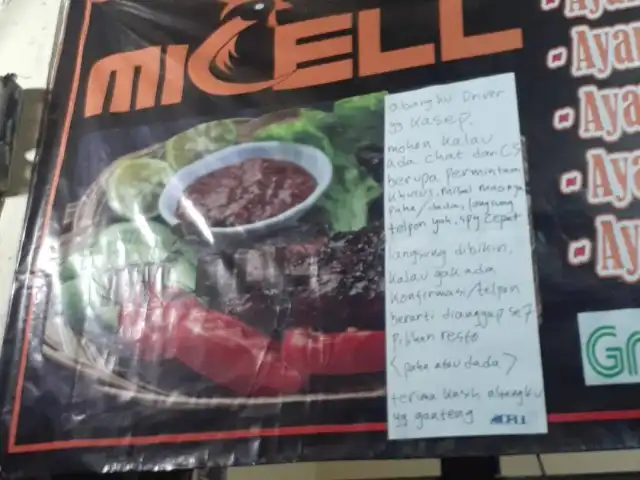 MICELL
Ayam
Ayam
Aya
Aya
Ay
abangku Driver
yg kasep,
mohon kalau
ada chat dari CS
berupa permintaan
khusus, misal
paha/dada, langsung
telpon yah, spy cepat
langsung dibikin,
kalau gak ada
Konfirmasi/telpon
berarti dianggap se7
pilihan resto
<paha atau dada>
terima kasih abangku
yg ganteng MICELL
Gr